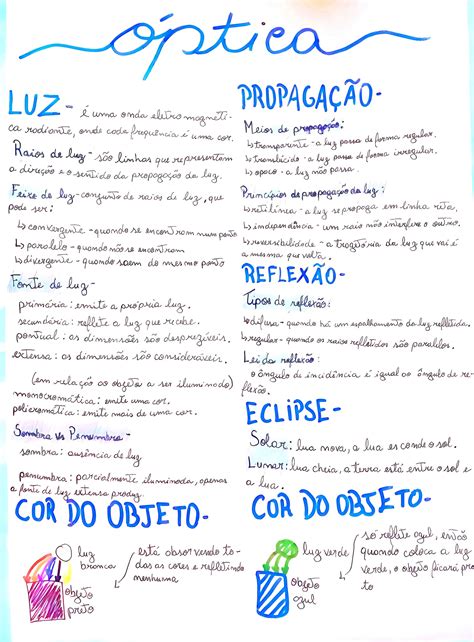 óptica
LUZ - é uma onda eletromagnéti-
ca radiante, onde cada frequência é uma cor.
Raios de luz - são linhas que representam
a direção e o sentido da propagação da luz.
Feixe de luz - conjunto de raios de luz, que
pode ser:
↳ convergente - quando se encontram num ponto
↳ paralelo - quando não se encontram
↳ divergente - quando saem do mesmo ponto
Fonte de luz -
primária: emite a própria luz.
secundária: reflete a luz que recebe.
pontual: as dimensões são desprezíveis.
extensa: as dimensões são consideráveis.
(em relação ao objeto a ser iluminado)
monocromática: emite uma cor.
policromática: emite mais de uma cor.
Sombra vs Penumbra -
sombra: ausência de luz
penumbra: parcialmente iluminada, apenas
a fonte de luz extensa produz.
COR DO OBJETO-
luz
branca
objeto
preto
está absorvendo to-
das as cores e refletindo
nenhuma
PROPAGAÇÃO-
Meios de propagação:
↳ transparente - a luz passa de forma regular.
↳ translúcido - a luz passa de forma irregular.
↳ opaco - a luz não passa.
Princípios de propagação da luz:
↳ retilínea - a luz se propaga em linha reta,
↳ independência - um raio não interfere o outro.
↳ reversibilidade - a trajetória da luz que vai é
a mesma que volta.
REFLEXÃO-
Tipos de reflexão:
↳ difusa - quando há um espalhamento da luz refletida.
↳ regular - quando os raios refletidos são paralelos.
Lei da reflexão:
o ângulo de incidência é igual ao ângulo de re-
flexão.
ECLIPSE-
Solar: lua nova, a lua esconde o sol.
Lunar: lua cheia, a terra está entre o sol e
a lua.
COR DO OBJETO-
luz verde
objeto
azul
só reflete azul, então
quando coloca a luz
verde, o objeto ficará pre
to